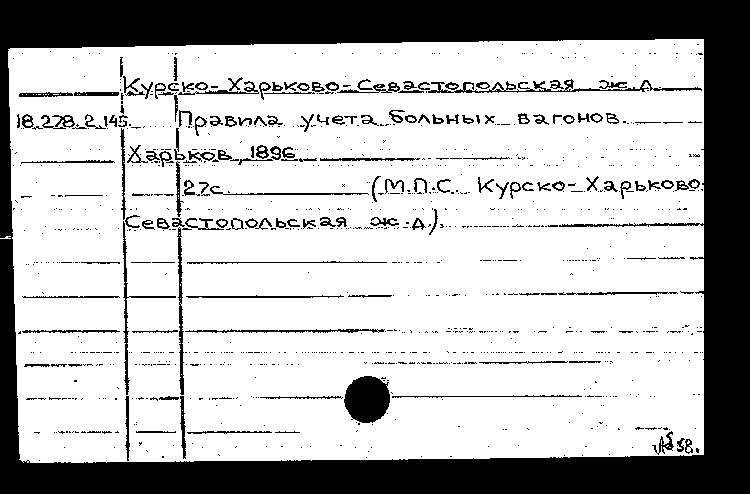 Курско-Харьково-Севастопольская ж.д.
18.278.2.145. Правила учета больных вагонов.
Харьков, 1896
27с. (М.П.С. Курско-Харьково-
Севастопольская ж.д.).
58.